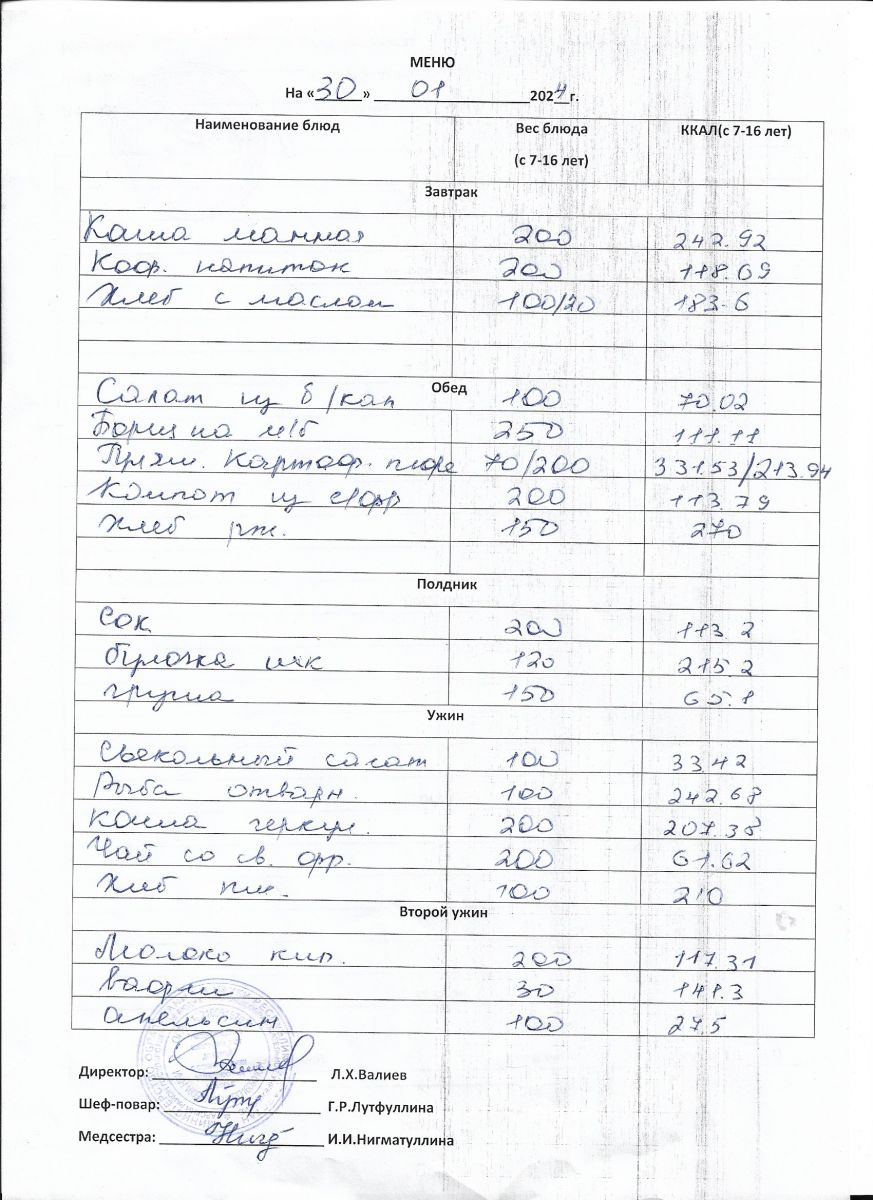 МЕНЮ
На «30» 01 2024 г.
Наименование блюд Вес блюда (с 7-16 лет) ККАЛ(с 7-16 лет)
Завтрак
Каша манная 200 242.92
Коф. напиток 200 118.69
Хлеб с маслом 100/20 183.6
Обед
Салат из б/кап 100 70.02
Борщ на м/б 250 111.11
Картоф. пюре 70/200 331.53/213.94
Компот из с/фр 200 113.79
Хлеб рж. 150 270
Полдник
Сок 200 113.2
булочка шк 120 215.2
груша 150 65.1
Ужин
Свекольный салат 100 33.42
Рыба отварн. 100 242.68
Каша геркул. 200 207.38
Чай со св. фр. 200 61.62
Хлеб пш. 100 210
Второй ужин
Молоко кип. 200 117.31
вафли 30 141.3
апельсин 100 27.5
Директор: Л.Х.Валиев
Шеф-повар: Г.Р.Лутфуллина
Медсестра: И.И.Нигматуллина